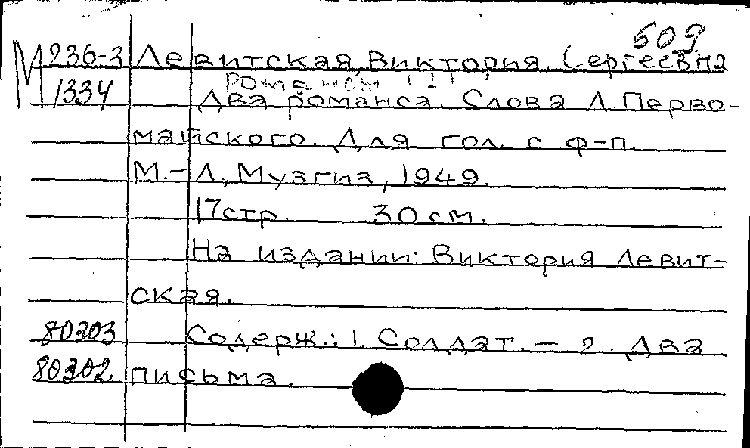 509
М 236-3 Левитская, Виктория Сергеевна
1334 Два романса. Слова Л. Перво-
майского. Для гол. с ф-п.
М.-Л., Музгиз, 1949.
17 стр. 30 см.
На издании: Виктория Левит-
ская.
80303 Содерж.: 1. Солдат. — 2. Два
80302. письма.